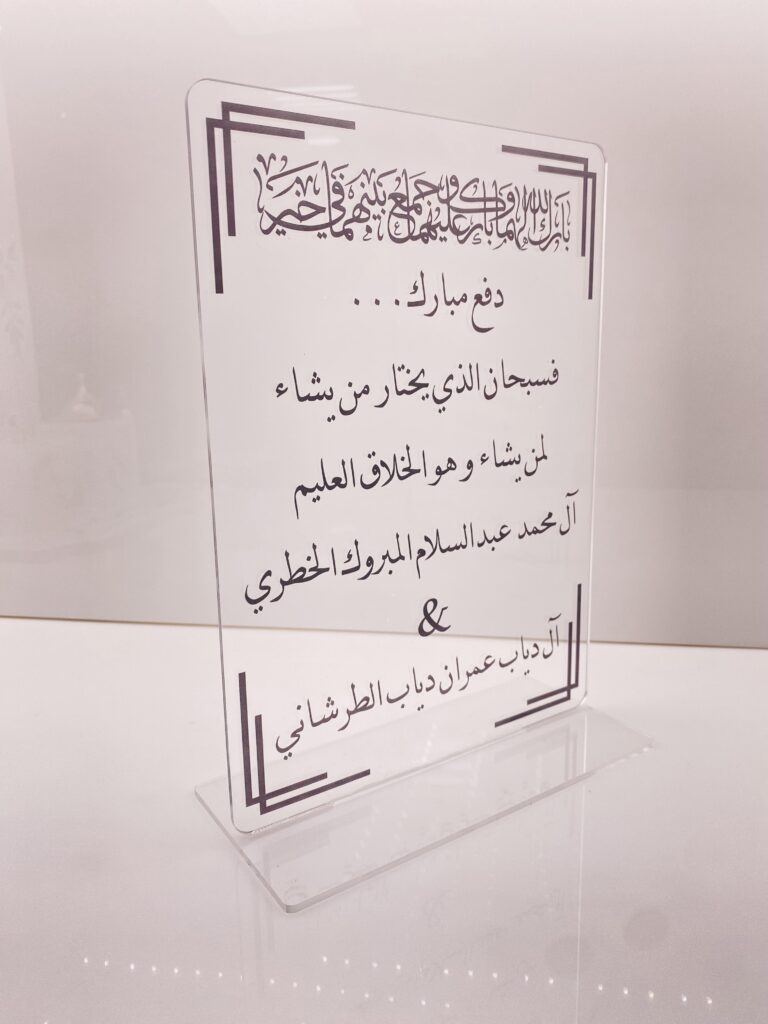 بَارَكَ اللهُ لَهُمَا وَبَارَكَ عَلَيْهِمَا وَجَمَعَ بَيْنَهُمَا فِي خَيْرٍ
دفع مبارك ...
فسبحان الذي يختار من يشاء
لمن يشاء وهو الخلاق العليم
آل محمد عبدالسلام المبروك الخطري
&
آل دياب عمران دياب الطرشاني